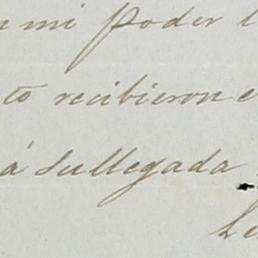 n mi poder l
to recibieron e
á sullegada
Le